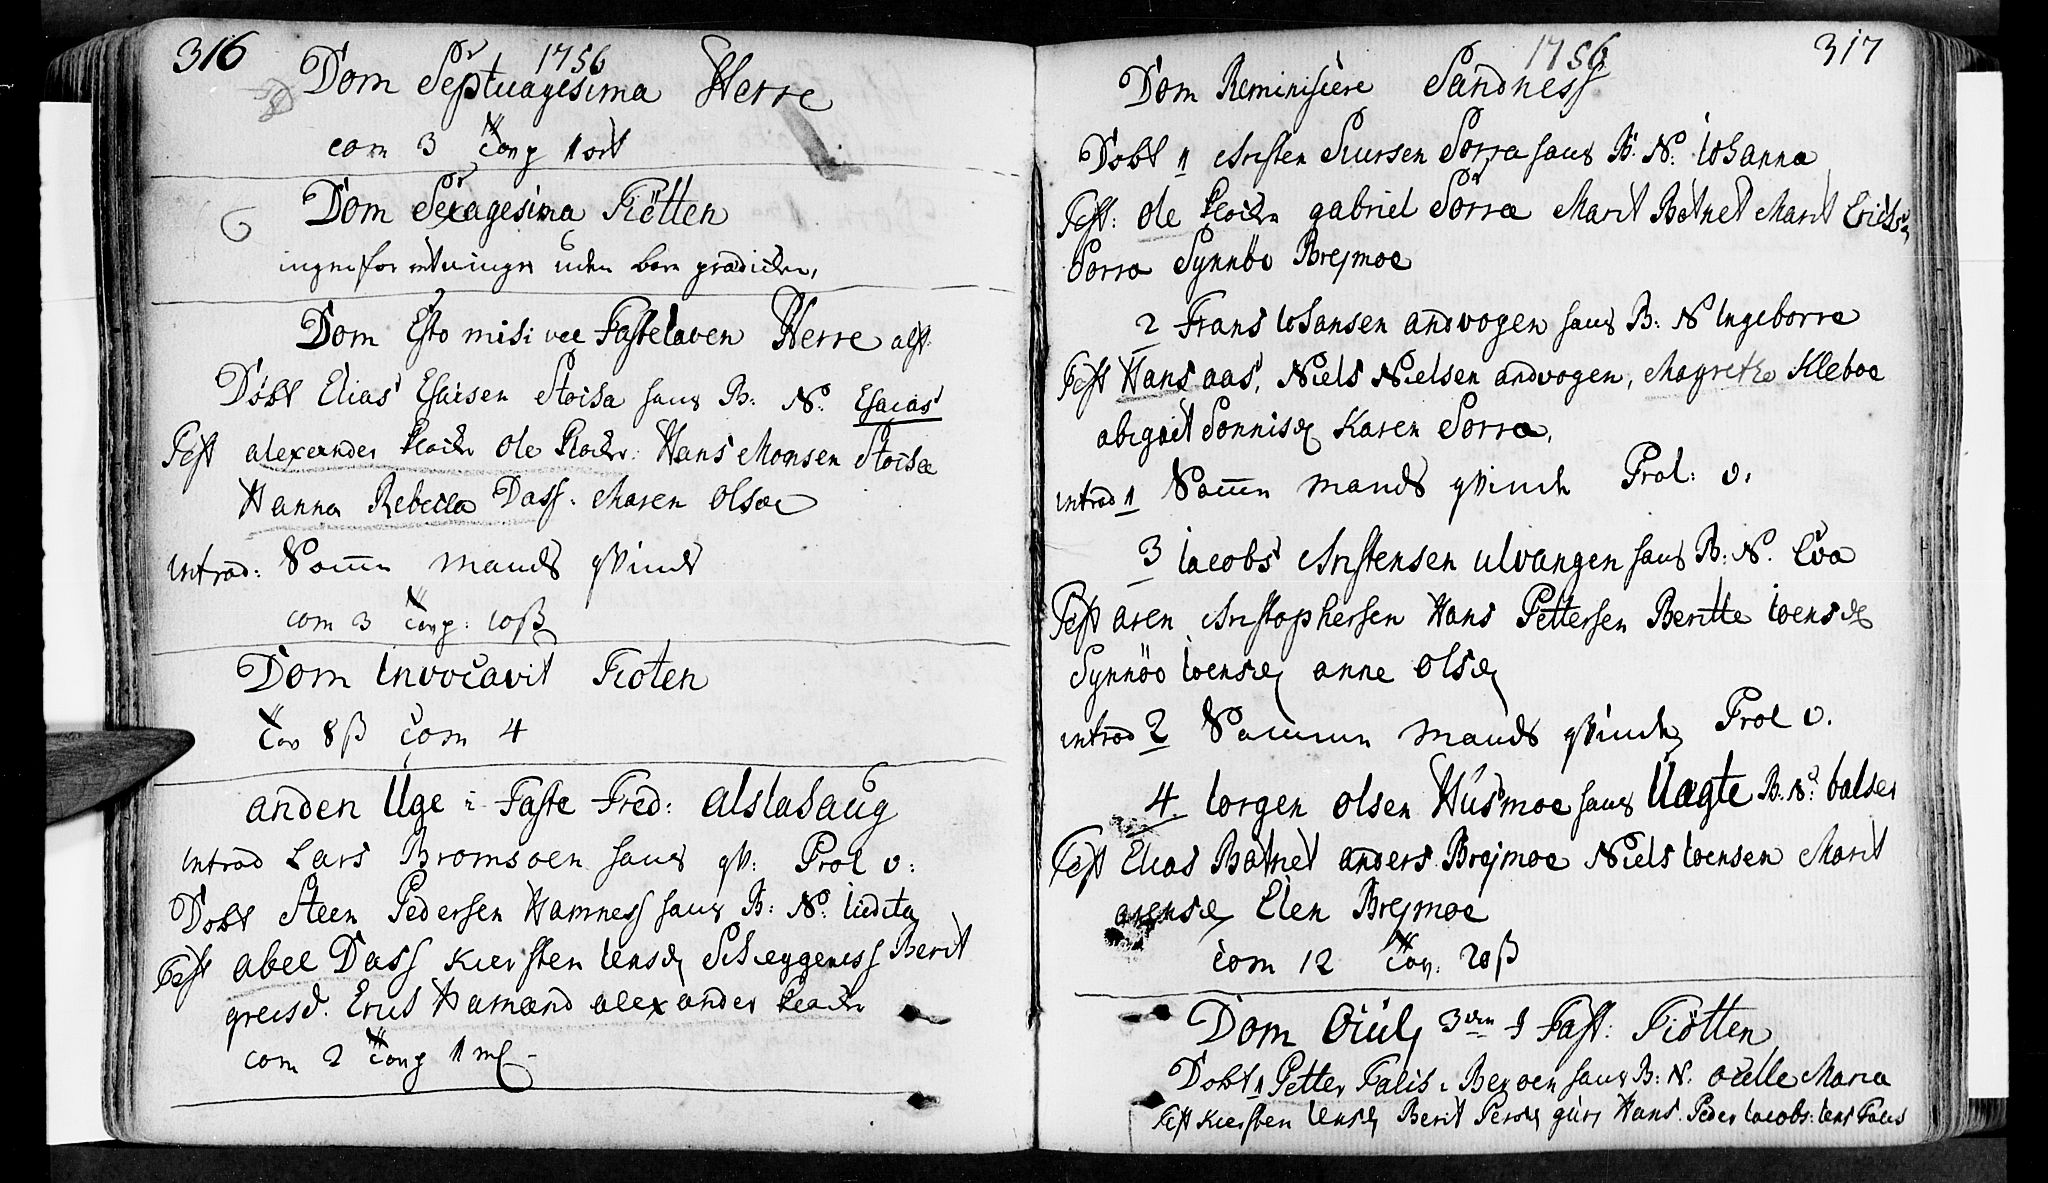 316
1756
Dom Septuagesima Herre
com 3 Cong 1 ort
Dom Sexagesima Tiötten
ingen forretninger uden bare prædicken,
Dom Esto mihi vel Fastelaven Herre aft.
Döbt Elias Esaisen Stoisa hans B: N: Esaias
Test alexander Klocker Ole Klocker: Hans Monsen Stoisæ
Hanna Rebecca Dass. Maren Olsdr
introd: Samme mands qvinde
com 3 Cong: 10 ß
Dom Invocavit Tioten
Con 8 ß Com 4
anden Uge i Faste Pred: alstahaug
introd Lars Bromsoen hans qv: Prol v:
Döbt Steen Pedersen Hamness hans B: N: Iidita
Test abel Dass Kiersten Iensdr Berit
greisd. Erich Hamænd alexander Klocker
com 2 Cong 1 m
1756
317
Dom Reminiscere Sandness
Döbt 1 Christen Siursen Sorra hans B: N: Iohanna
Test: Ole Klocker gabriel Sörra Marit Botnet Marit Erichsd
Sorra Synnöv Brejmoe
2 Frans Iohansen andvogen hans B: N Ingeborre
Test Hans aas, Niels Nielsen andvogen, Magrethe Kleboe
abigael Sonnisdr Karen Sorra.
introd 1 Samme mands qvinde Prol: v.
3 Iacobs Christensen ulvangen hans B: N. Eva
Test aren Christophersen Hans Pettersen Beritte Ioensdr
Synnöv Ioensdr anne Olsdr
introd 2 Samme mands qvinde Prol v.
4. Iorgen Olsen Husmoe hans Uægte B: N: balser
Test Elias Botnet anders Brejmoe Niels Ioensen Marit
arensdr Elen Brejmoe
Com 12 Con: 20 ß
Dom Oculi 3den I Fast: Tiötten
Döbt 1 Petter Falis i Beroen hans B: N. Maria
Test Kiersten Iensdr Berit Persdr guri Hans. Peder Iacobs: Iens Falis